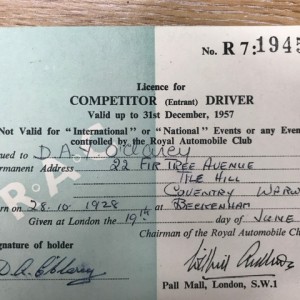 No. R 7: 1945
Licence for
COMPETITOR (Entrant) DRIVER
Valid up to 31st December, 1957
Not Valid for "International" or "National" Events or any Even
controlled by the Royal Automobile Club
sued to D.A.
ermanent Address 22 FIR TREE AVENUE
TILE HILL
COVENTRY WARW
rn on 28.10.1928 at BECKENHAM
Given at London the 19th day of JUNE
Chairman of the Royal Automobile Clu
ignature of holder
Pall Mall, London, S.W.1
R.A.C